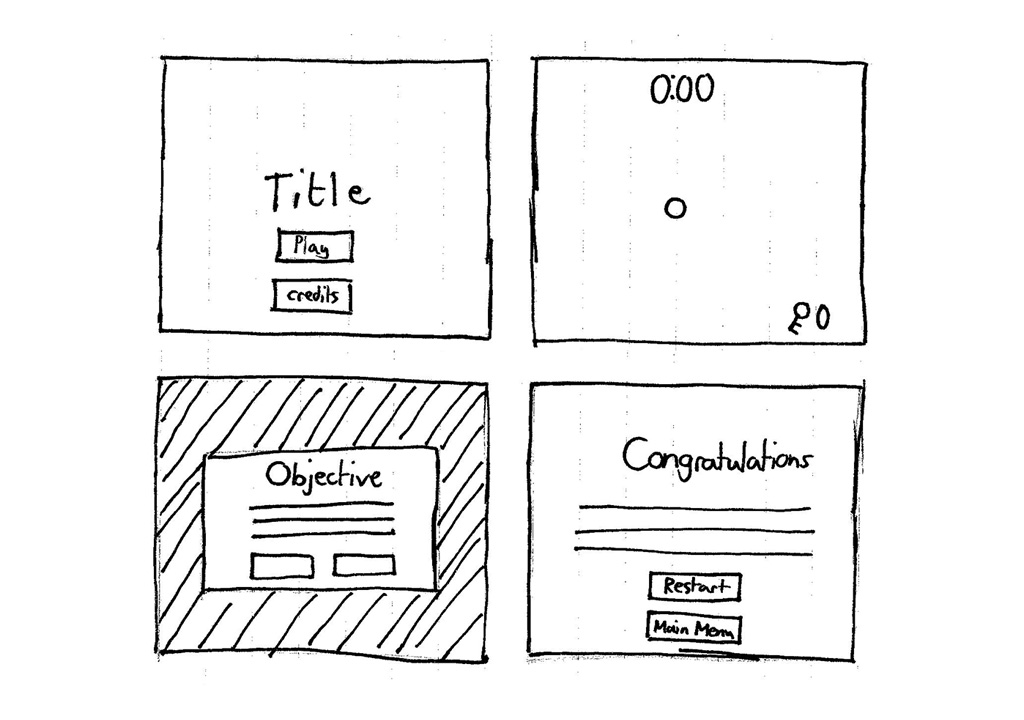 Title
Play
credits
0:00
0
Objective
Congratulations
Restart
Main Menu